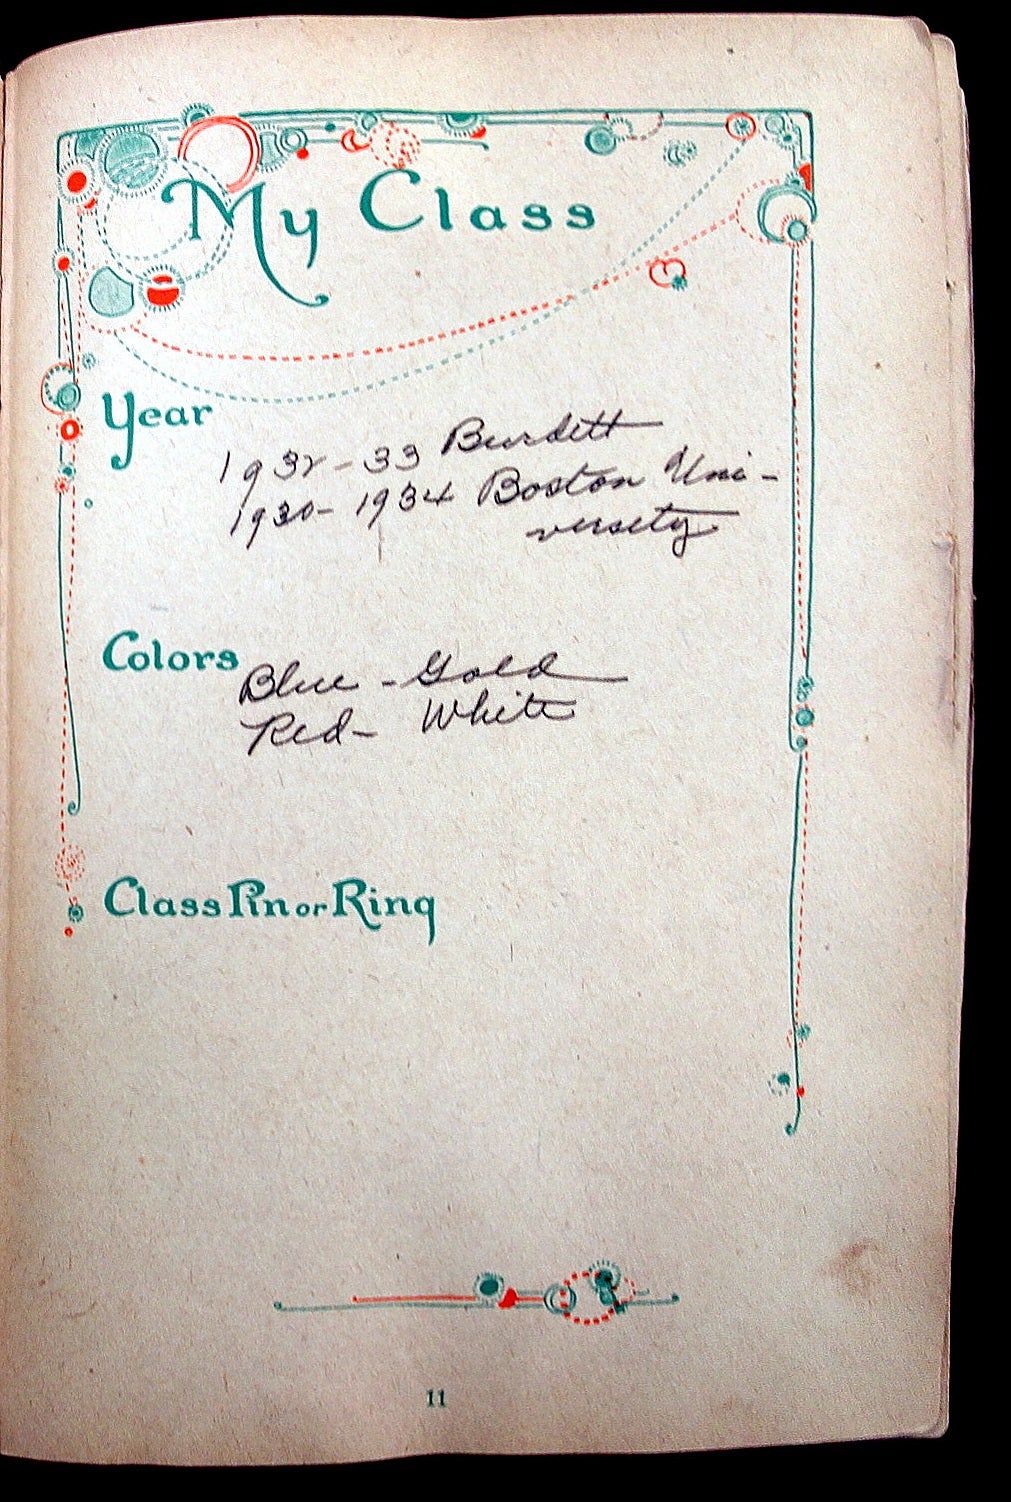 My Class
Year
1932-33 Burdett
1930-1934 Boston Uni-
versity
Colors
Blue - Gold
Red - White
Class Pin or Ring
11